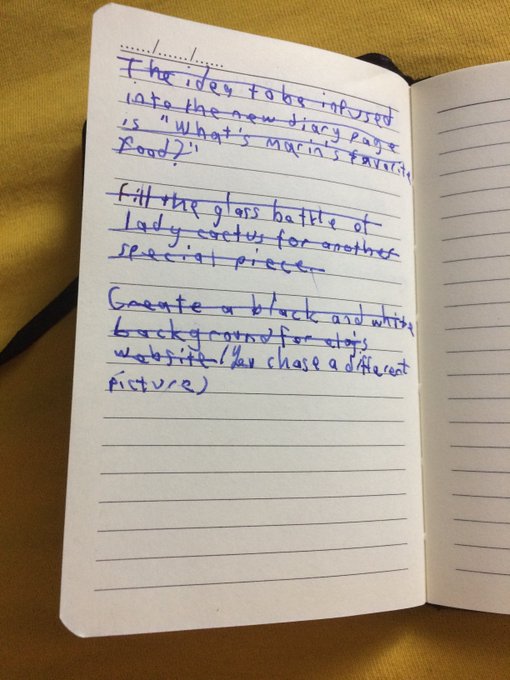 ....../....../......
The idey to be infused
into the new diary page
is "What's marin's favorite
food?"
fill the glass battle of
lady cactus for another
special piece.
Create a black and white
background for
website (You chase a different
picture)